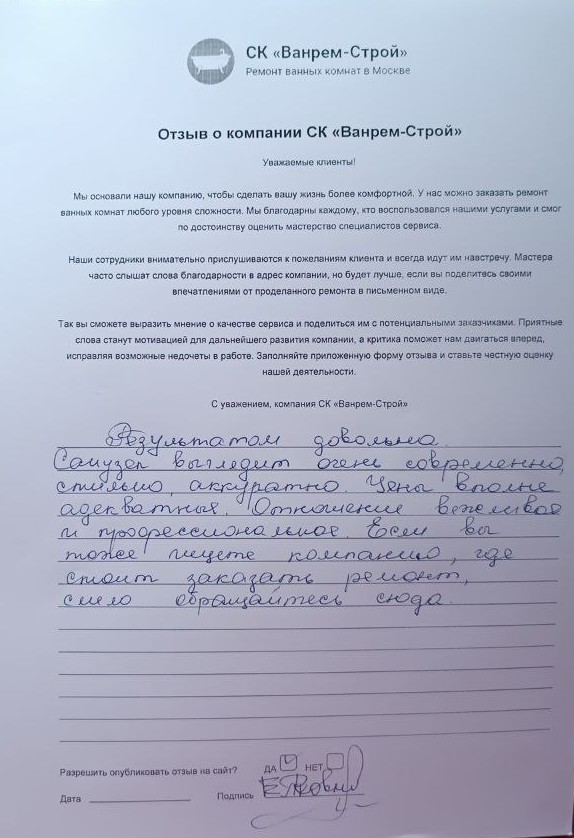 СК «Ванрем-Строй»
Ремонт ванных комнат в Москве
Отзыв о компании СК «Ванрем-Строй»
Уважаемые клиенты!
Мы основали нашу компанию, чтобы сделать вашу жизнь более комфортной. У нас можно заказать ремонт
ванных комнат любого уровня сложности. Мы благодарны каждому, кто воспользовался нашими услугами и смог
по достоинству оценить мастерство специалистов сервиса.
Наши сотрудники внимательно прислушиваются к пожеланиям клиента и всегда идут им навстречу. Мастера
часто слышат слова благодарности в адрес компании, но будет лучше, если вы поделитесь своими
впечатлениями от проделанного ремонта в письменном виде.
Так вы сможете выразить мнение о качестве сервиса и поделиться им с потенциальными заказчиками. Приятные
слова станут мотивацией для дальнейшего развития компании, а критика поможет нам двигаться вперед,
исправляя возможные недочеты в работе. Заполняйте приложенную форму отзыва и ставьте честную оценку
нашей деятельности.
С уважением, компания СК «Ванрем-Строй»
Результатом довольна.
Санузел выглядит очень современно,
стильно, аккуратно. Цены вполне
адекватные. Отношение вежливое
и профессиональное. Если вы
тоже ищете компанию, где
стоит заказать ремонт,
смело обращайтесь сюда.
Разрешить опубликовать отзыв на сайт? ДА НЕТ
Дата Подпись